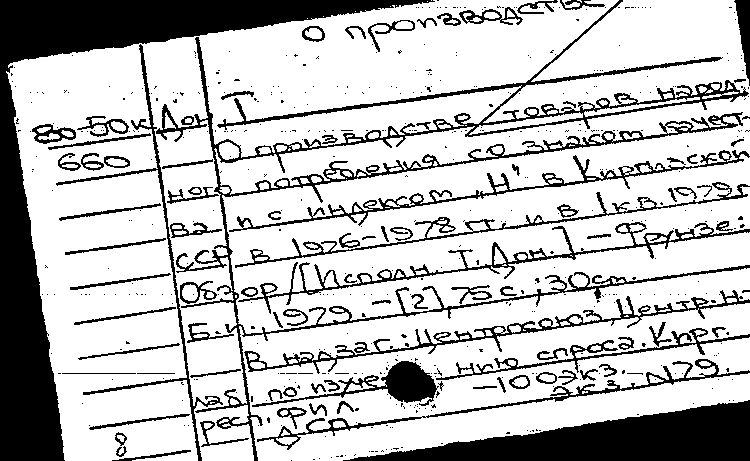 О производстве
80-50к Дон, Т
660 О производстве товаров народ-
ного потребления со знаком качест-
ва и с индексом „Н" в Киргизской
ССР в 1976-1978 гг. и в I кв. 1979г
Обзор /[Исполн. Т. Дон.]. - Фрунзе:
Б.и., 1979. - [2], 75 с.; 30 см.
В надзаг.: Центросоюз, Центр. н.-
лаб. по изуче нию спроса. Кирг.
респ. фил. -100 экз.
8 ДСП. экз. N79.